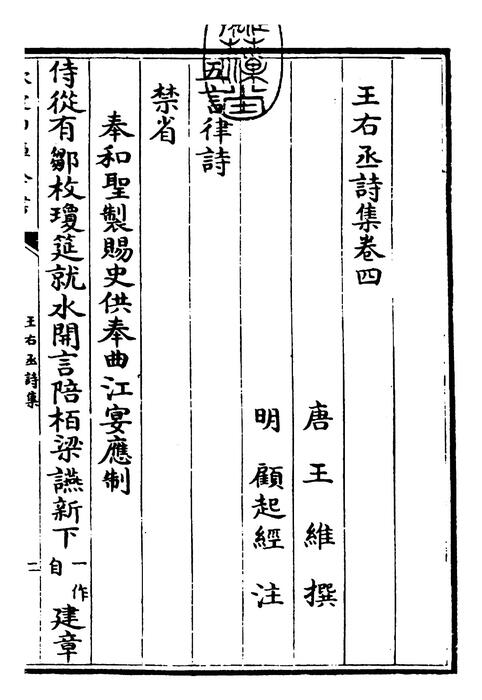 王右丞詩集卷四
唐 王維 撰
明 顧起經 注
五言律詩
禁省
奉和聖製賜史供奉曲江宴應制
侍從有鄒枚瓊筵就水開言陪栢梁讌新下一作自建章
王右丞詩集